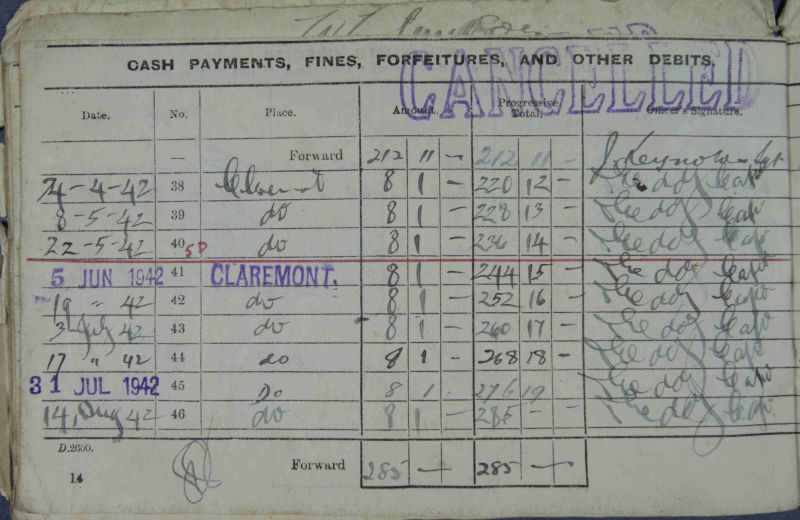 CANCELLED
CASH PAYMENTS, FINES, FORFEITURES, AND OTHER DEBITS.
Date. No. Place. Amount. Progressive Total. Officer's Signature.
— Forward 212 11 — 212 11 —
24-4-42 38 8 1 — 220 12 —
8-5-42 39 do 8 1 — 228 13 —
22-5-42 40 do 8 1 — 236 14 —
5 JUN 1942 41 CLAREMONT. 8 1 — 244 15 —
19 " 42 42 do 8 1 — 252 16 —
3 July 42 43 do 8 1 — 260 17 —
17 " 42 44 do 8 1 — 268 18 —
31 JUL 1942 45 Do 8 1 276 19
14, Aug 42 46 do 8 1 — 285 — —
D.2600. Forward 285 — 285 —
14